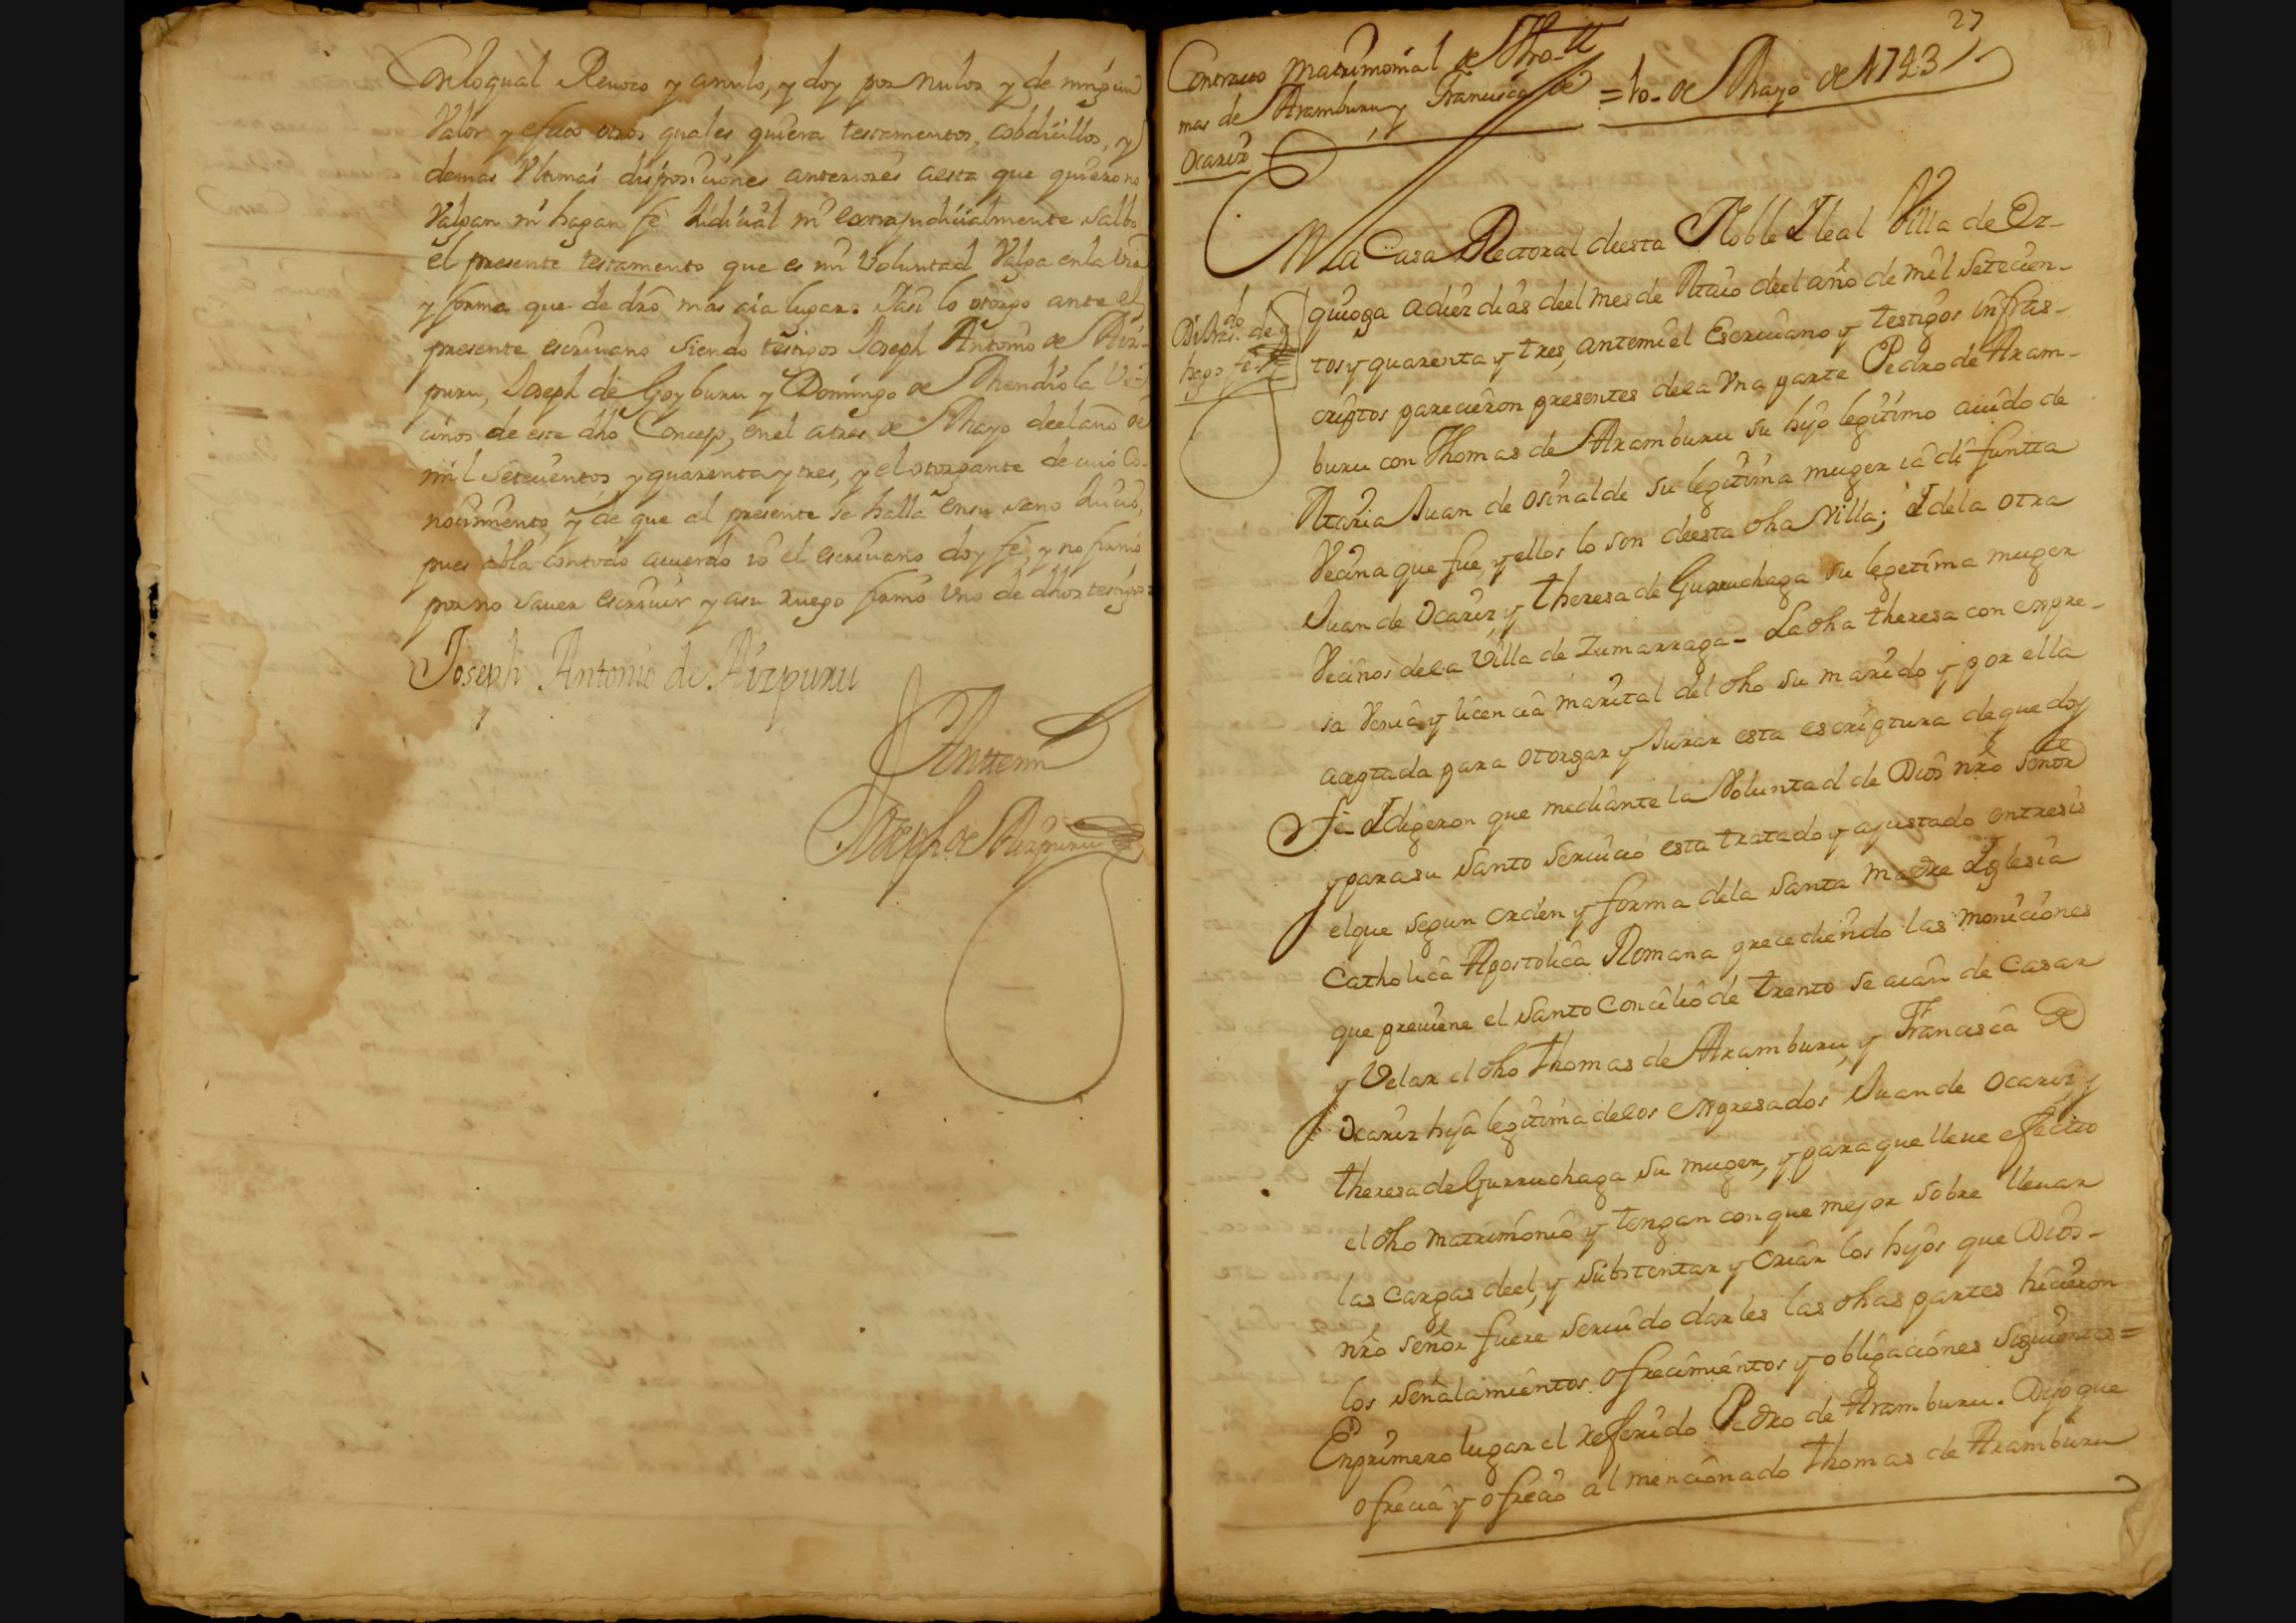 Conloqual Reuoco y anulo, y doy por nulos y de ningun
Valor y efectos otros quales quiera testamentos, cobdicillos, y
demas Vltimas disposiciones anteriores aesta que quiero no
Valgan ni hagan fè Judicial ni extrajudicialmente salbo
el presente testamento que es mi Voluntad Valga enla via
y forma que de dro mas aia lugar. Jasi lo otorgo ante el
presente escriuano siendo testigos Joseph Antonio de Aiz-
puru, Joseph de Goyburu y Domingo de Mendiola Ve-
cinos de este dho Concejo, enel atres de Mayo deel año de
mil setecientos y quarenta y tres, y el otorgante de cuio Co-
nocimiento, y de que al presente se halla ensu sano Juicio,
pues abla contodo acuerdo io el escriuano doy fè, y no firmò
porno sauer escriuir, y asu ruego firmò vno de dhos testigos
Joseph Antonio de Aizpuru
Antemi
Joseph de Aizpuru
27
Contracto matrimonial de Tho-
mas de Aramburu y Francisca de
Ocariz
=10- de Mayo de 1743
EN La Casa Rectoral deesta Noble Y leal Villa de Oz-
quioga adiez dias deel mes de Maio deel año de mil setecien-
tos y quarenta y tres, antemi el Escriuano y testigos infras-
criptos parecieron presentes dela Vna parte Pedro de Aram-
buru con Thomas de Aramburu su hijo legitimo auido de
Maria Juan de Osinalde su legitima muger ia difuntta
Vecina que fue, y ellos lo son deesta dha Villa; Y dela otra
Juan de Ocariz, y theresa de Gurruchaga su legetima muger
Vecinos dela Villa de Zumarraga- La dha theresa con expre-
sa Venia y licencia marital del dho su marido y por ella
aceptada para otorgar y Jurar esta escriptura de que doy
feè Y digeron que mediante la Voluntad de Dios nro señor
y para su santo seruicio esta tratado y ajustado entresis
elque segun orden y forma dela santa madre Yglesia
Catholica Apostolica Romana precediendo las moniciones
que preuiene el santo Concilio de trento se aian de Casar
y Velar el dho Thomas de Aramburu, y Francisca de
Ocariz hija legitima delos expresados Juan de Ocariz, y
theresa de Gurruchaga su muger, y para que lleue effectto
el dho matrimonio y tengan con que mejor sobre lleuar
las Cargas deel, y substentar y Criar los hijos que Dios-
nro señor fuere seruido darles las dhas partes hicieron
los señalamientos ofrecimientos y obligaciones siguientes=
Enprimero lugar el refferido Pedro de Aramburu. Dijo que
ofrecia y ofrecio al mencionado thomas de Aramburu